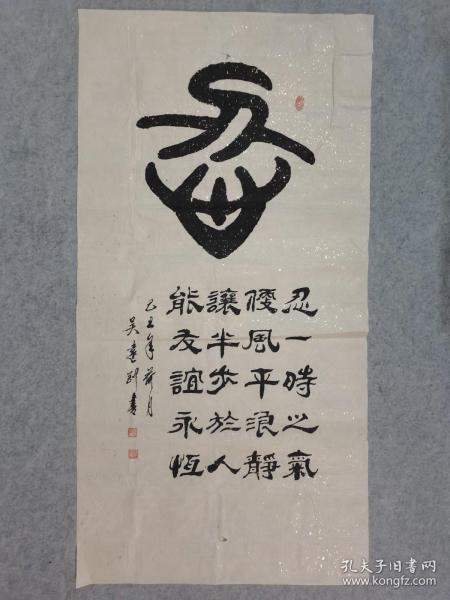 忍
忍一時之氣
便風平浪靜
讓半步於人
能友誼永恆
己丑年荷月
吴達刚書
孔夫子旧书网
www.kongfz.com